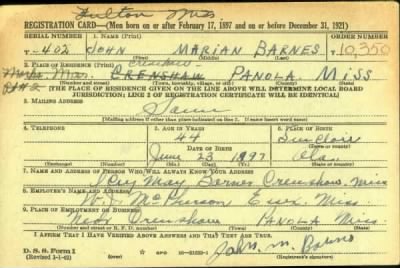 Fulton Miss
REGISTRATION CARD—(Men born on or after February 17, 1897 and on or before December 31, 1921)
SERIAL NUMBER 1. NAME (Print) ORDER NUMBER
T-402 JOHN MARIAN BARNES T10,350
(First) (Middle) (Last)
2. PLACE OF RESIDENCE (Print) Crenshaw
Miss. CRENSHAW PANOLA, MISS
(Number and street) (Town, township, village, or city) (County) (State)
[THE PLACE OF RESIDENCE GIVEN ON THE LINE ABOVE WILL DETERMINE LOCAL BOARD
JURISDICTION; LINE 2 OF REGISTRATION CERTIFICATE WILL BE IDENTICAL]
3. MAILING ADDRESS
Same
[Mailing address if other than place indicated on line 2. If same insert word same]
4. TELEPHONE 5. AGE IN YEARS 6. PLACE OF BIRTH
44
DATE OF BIRTH
June 23 1897 Ala.
(Exchange) (Number) (Mo.) (Day) (Yr.) (State or country)
7. NAME AND ADDRESS OF PERSON WHO WILL ALWAYS KNOW YOUR ADDRESS
May Barnes Crenshaw, Miss
8. EMPLOYER'S NAME AND ADDRESS
W. J. McPherson Miss.
9. PLACE OF EMPLOYMENT OR BUSINESS
Near Crenshaw PANOLA Miss.
(Number and street or R. F. D. number) (Town) (County) (State)
I AFFIRM THAT I HAVE VERIFIED ABOVE ANSWERS AND THAT THEY ARE TRUE.
D. S. S. Form 1
(Revised 1-1-42) (over)
John M. Barnes
(Registrant's signature)